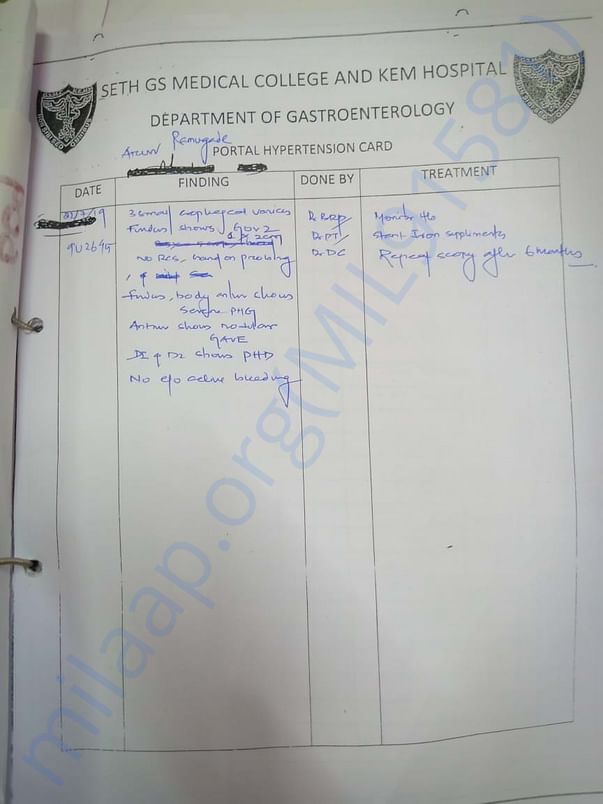 SETH GS MEDICAL COLLEGE AND KEM HOSPITAL
DEPARTMENT OF GASTROENTEROLOGY
Ramugade
PORTAL HYPERTENSION CARD
DATE FINDING DONE BY TREATMENT
02/7/19 3 small esophageal varices Dr BRP Monitor Hb
Fundus shows GOV2 Dr PT Start Iron suppliments
1 x 2cm
9U2649 No RCS, hard on probing Dr DC Repeat scopy after 6 months
Fundus, body antrum shows
Severe PHG
Antrum shows nodular
GAVE
D1 & D2 shows PHD
No e/o active bleeding
milaap.org(MIL915581)